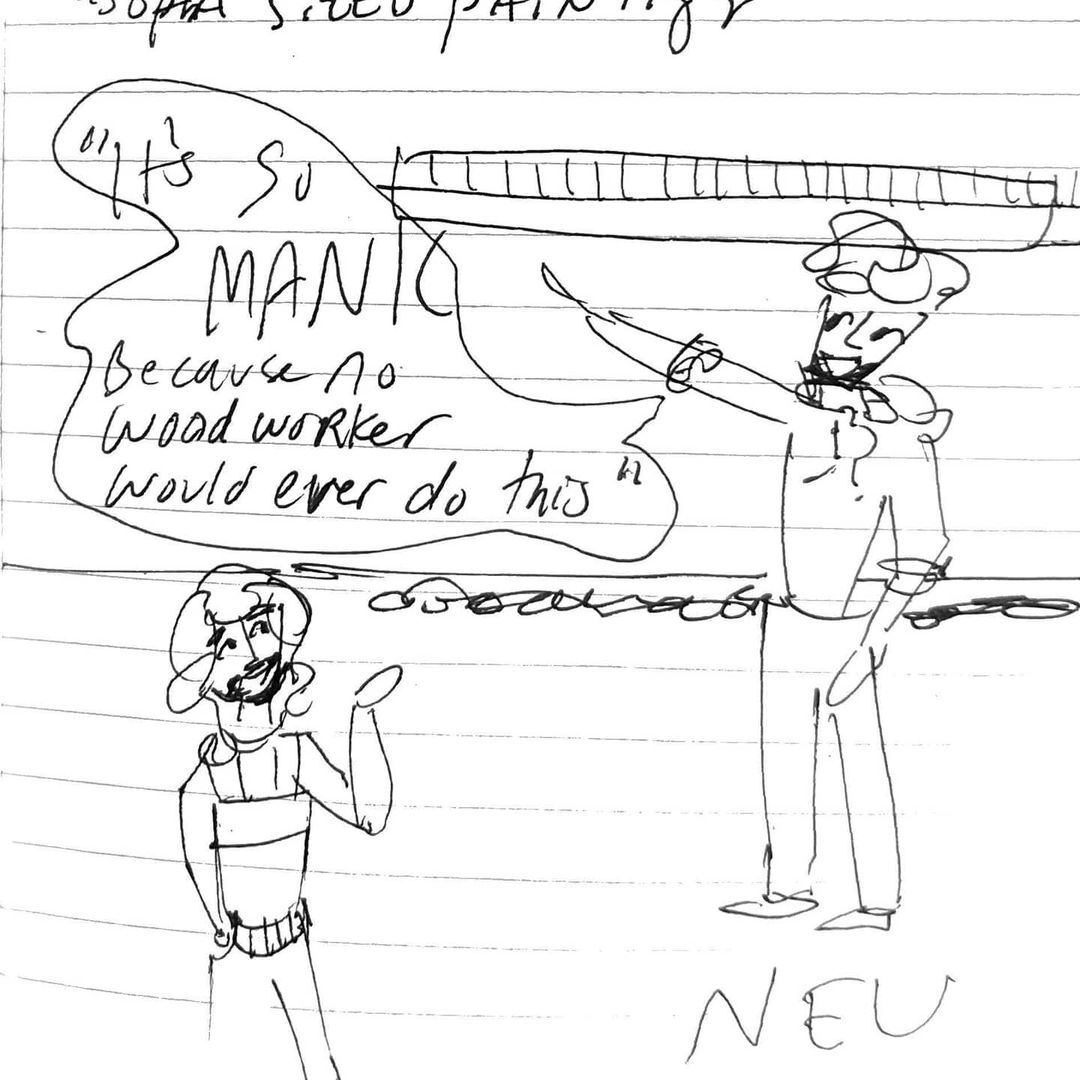 SIZED PAINTING
"It's So
MANIC
Because no
wood worker
would ever do this"
NEU